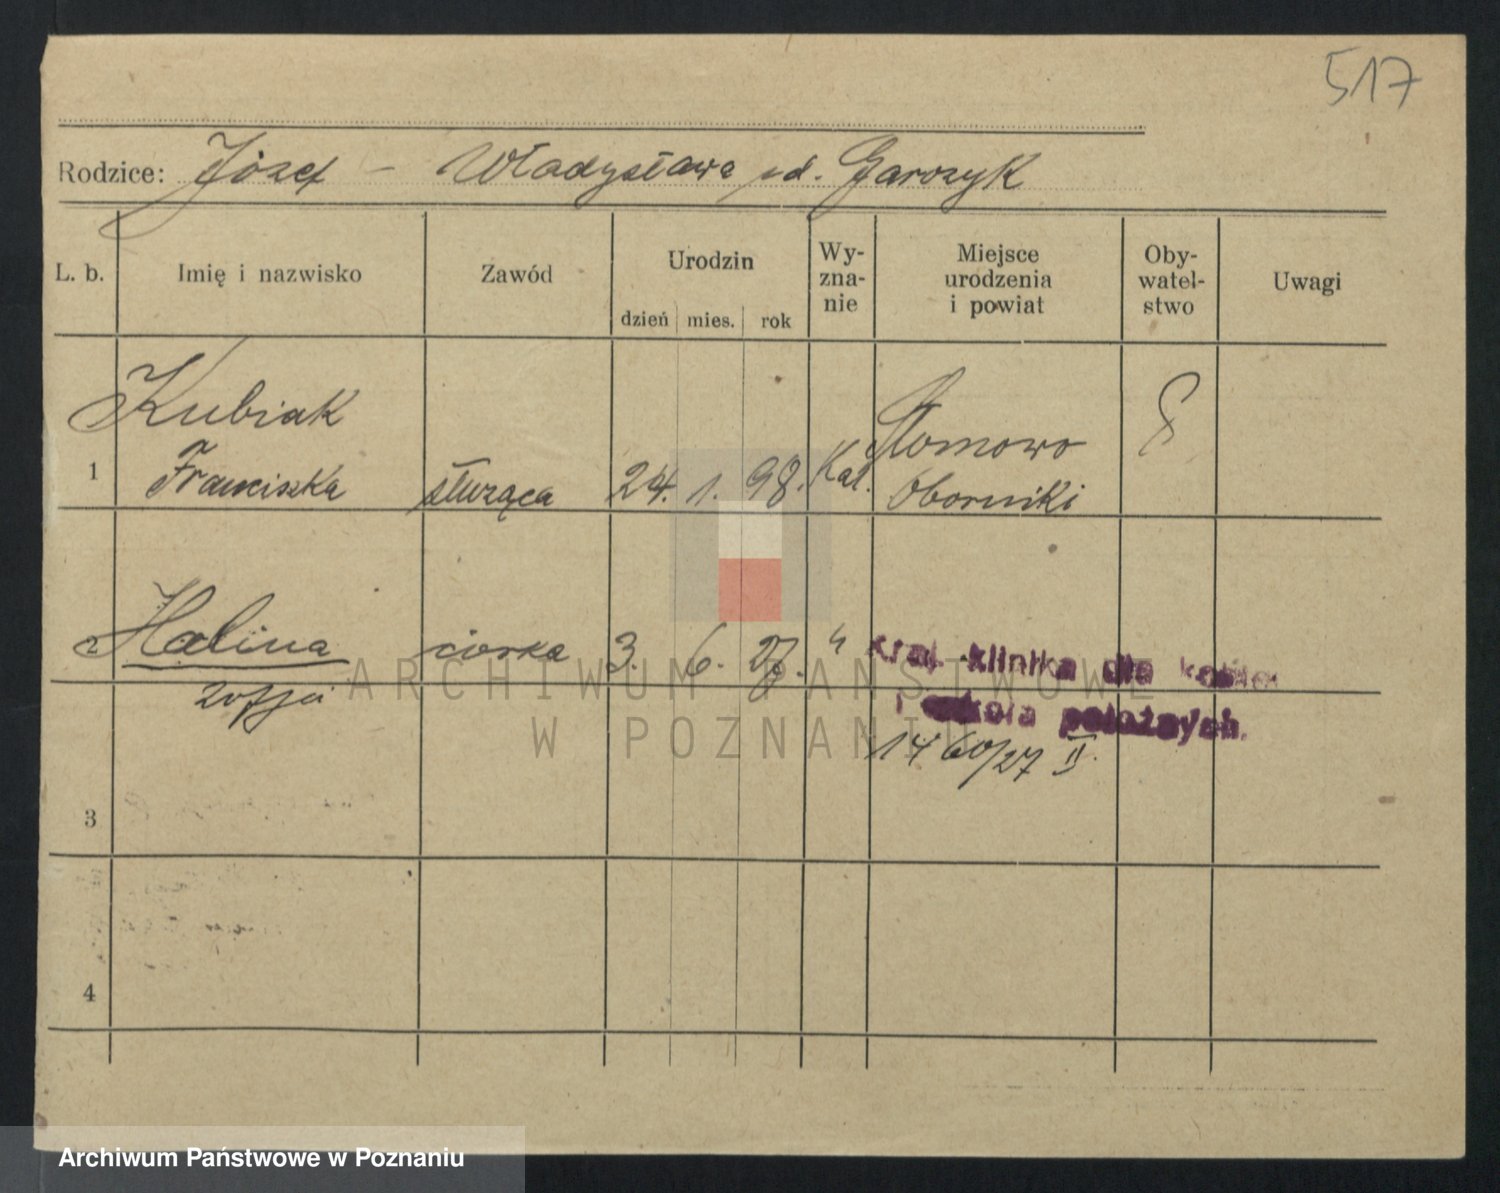 517
Rodzice: Józef - Władysława Garczyk
L. b. Imię i nazwisko Zawód Urodzin dzień mies. rok Wy-zna-nie Miejsce urodzenia i powiat Oby-watel-stwo Uwagi
Kubiak Słomowo
1 Franciszka służąca 24. 1. 98. Kat. Oborniki
2 Halina córka 3. 6. 27. " Kraj. klinika dla kobiet
Zofja i szkoła położnych.
1460/27 II.
3
4
ARCHIWUM PAŃSTWOWE
W POZNANIU
Archiwum Państwowe w Poznaniu